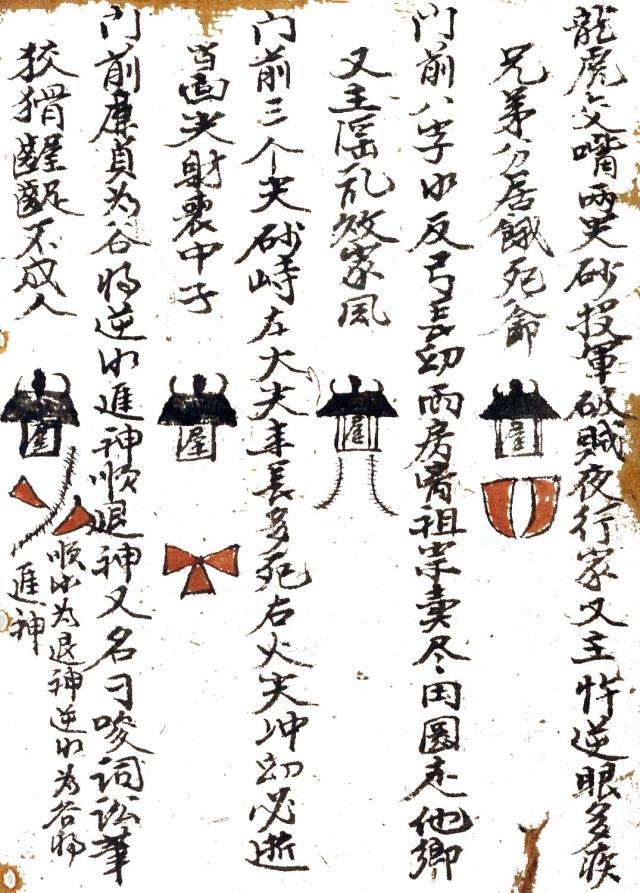 龍虎交嘴兩尖砂投軍破賊夜行家又主忤逆眼多疾
兄弟分居餓死爺
屋
門前八字水反弓長幼兩房背祖宗賣尽田園走他鄉
又主淫乱敗家風
屋
门前三个尖砂峙左火夫丰長多死右火夫冲幼必逝
当面尖射衰中子
屋
门前廉貞为谷将逆水進神順退神又名刁唆詞讼筆
狡猾齷齪不成人
屋
順水为退神逆水为谷将
進神